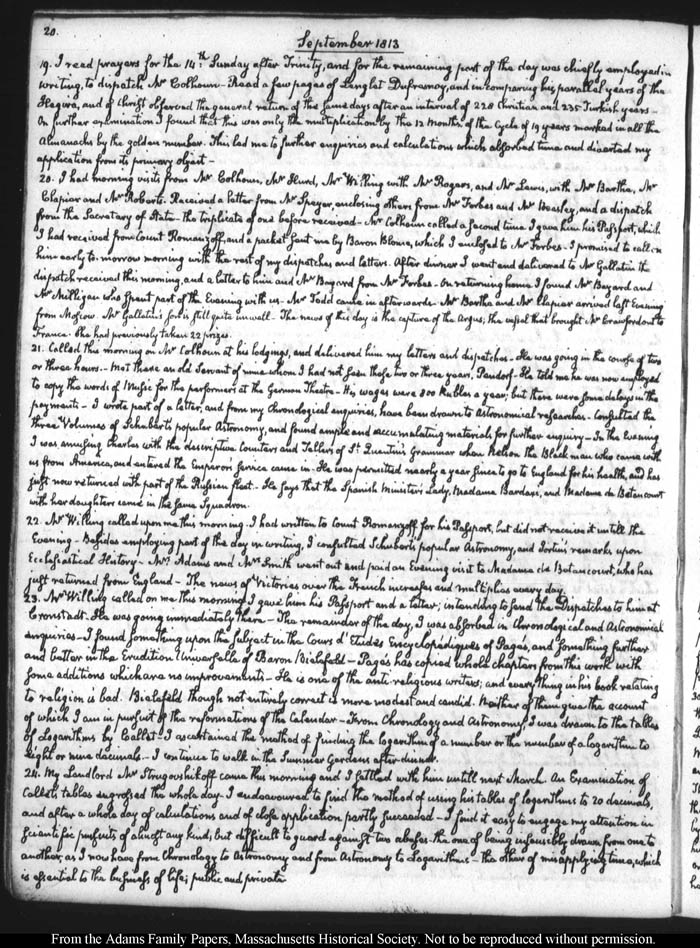 20.
September 1813
19. I read prayers for the 14th Sunday after Trinity, and for the remaining part of the day was chiefly employed in
writing, to dispatch Mr Colhoun. Read a few pages of Lenglet Dufresnoy, and in comparing his parallel years of the
Hegira, and of Christ observed the general return of the same days after an interval of 228 Christian and 235 Turkish years.
On further examination I found that this was only the multiplication by the 12 Months of the Cycle of 19 years marked in all the
Almanachs by the golden number. This led me to further enquiries and calculations which absorbed time and diverted my
application from its primary object —
20. I had morning visits from Mr Colhoun, Mr Hurd, Mr Willing with Mr Rogers, and Mr Lewis, with Mr Barthe, Mr
Clapier and Mr Roberts. Received a letter from Mr Speyer, enclosing others from Mr Forbes and Mr Beasley, and a dispatch
from the Secretary of State — the triplicate of one before received — Mr Colhoun called a second time. I gave him his Passport, which
I had received from Count Romanzoff, and a packet sent me by Baron Blome, which I enclosed to Mr Forbes — I promised to call on
him early to-morrow morning with the rest of my dispatches and letters. After dinner I went and delivered to Mr Gallatin the
dispatch received this morning, and a letter to him and Mr Bayard from Mr Forbes. On returning home I found Mr Bayard and
Mr Milligan who spent part of the Evening with us. Mr Todd came in afterwards — Mr Barthe and Mr Clapier arrived last Evening
from Moscow. Mr Gallatin's son is still quite unwell. The news of this day is the capture of the Argus; the vessel that brought Mr Crawford out to
France. She had previously taken 22 prizes.
21. Called this morning on Mr Colhoun at his lodgings, and delivered him my letters and dispatches — He was going in the course of two
or three hours. — Met there an old Servant of mine whom I had not seen these two or three years, Pandorf — He told me he was now employed
to copy the words of Music for the performers at the German Theatre — His wages were 800 Rubles a year, but there were some delays in the
payments — I wrote part of a letter, and from my Chronological enquiries, have been drawn to Astronomical researches — Consulted the
three Volumes of Schubert's popular Astronomy, and found ample and accumulating materials for further enquiry — In the Evening
I was amusing Charles with the descriptive Counters and Tellers of St Quentin's Grammar when Nelson the Black man who came with
us from America, and entered the Emperor's service came in — He was permitted nearly a year since to go to England for his health, and has
just now returned with part of the Russian fleet — He says that the Spanish Minister's Lady, Madame Bardaxi, and Madame de Betancourt
with her daughters came in the same Squadron.
22. Mr Willing called upon me this morning. I had written to Count Romanzoff for his Passport, but did not receive it untill the
Evening — Besides employing part of the day in writing, I consulted Schubert's popular Astronomy, and Jortin's remarks upon
Ecclesiastical History — Mrs Adams and Mrs Smith went out and paid an Evening visit to Madame de Betancourt, who has
just returned from England — The news of Victories over the French increases and multiplies every day.
23. Mr Willing called on me this morning. I gave him his Passport and a letter; intending to send the Dispatches to him at
Cronstadt. He was going immediately there — The remainder of the day, I was absorbed in Chronological and Astronomical
enquiries — I found something upon the subject in the Cours d'Etudes Encyclopédiques of Pagès, and something further
and better in the Erudition Universelle of Baron Bielefeld — Pagès has copied whole chapters from this work with
some additions which are no improvements — He is one of the anti-religious writers; and every thing in his book relating
to religion is bad. Bielefeld though not entirely correct is more modest and candid. Neither of them gives the account
of which I am in pursuit of the reformations of the Calendar — From Chronology and Astronomy, I was drawn to the tables
of Logarithms by Callet — I ascertained the method of finding the logarithm of a number or the number of a logarithm to
eight or nine decimals. — I continue to walk in the Summer Gardens after dinner.
24. My Landlord Mr Strogovshikoff came this morning and I settled with him untill next March. An Examination of
Callet's tables engrossed the whole day. I endeavoured to find the method of using his tables of logarithms to 20 decimals,
and after a whole day of calculations and of close application partly succeeded — I find it easy to engage my attention in
scientific pursuits of almost any kind, but difficult to guard against two abuses — the one of being insensibly drawn from one to
another, as I now have from Chronology to Astronomy and from Astronomy to Logarithms — the other of misapplying time, which
is essential to the business of life; public and private.
From the Adams Family Papers, Massachusetts Historical Society. Not to be reproduced without permission.